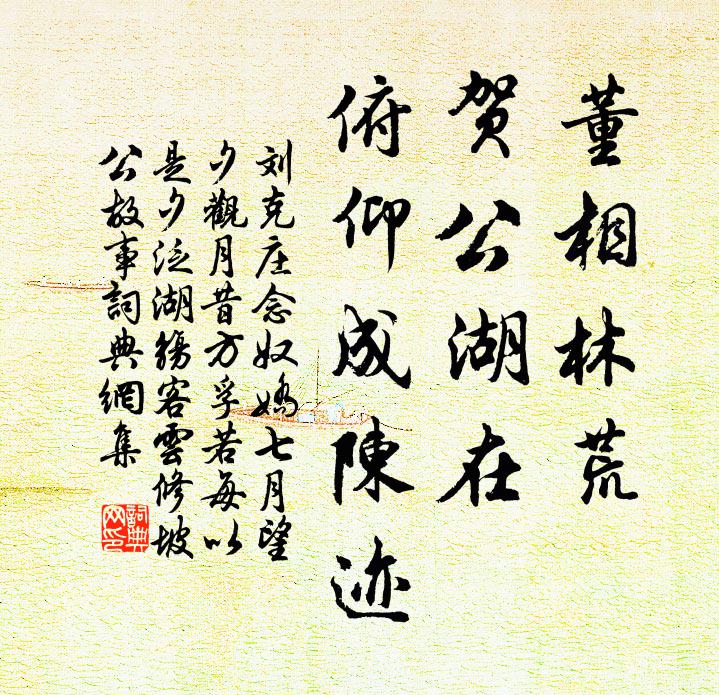 董相林荒
贺公湖在
俯仰成陳迹
刘克庄念奴嬌七月望
夕觀月昔方孚若每以
是夕泛湖觴客雲修坡
公故事詞典網集
詞典
网印